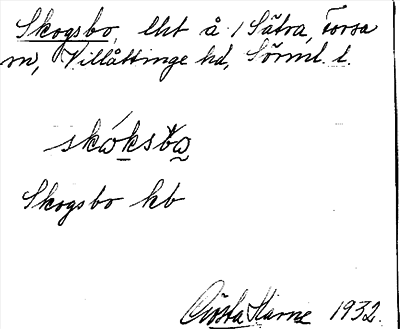 Skogsbo, lht å 1 Sätra, Torsa
sn, Villåttinge hd, Sörml. l.
skóksba
Skogsbo kb
Gösta Harne 1932.